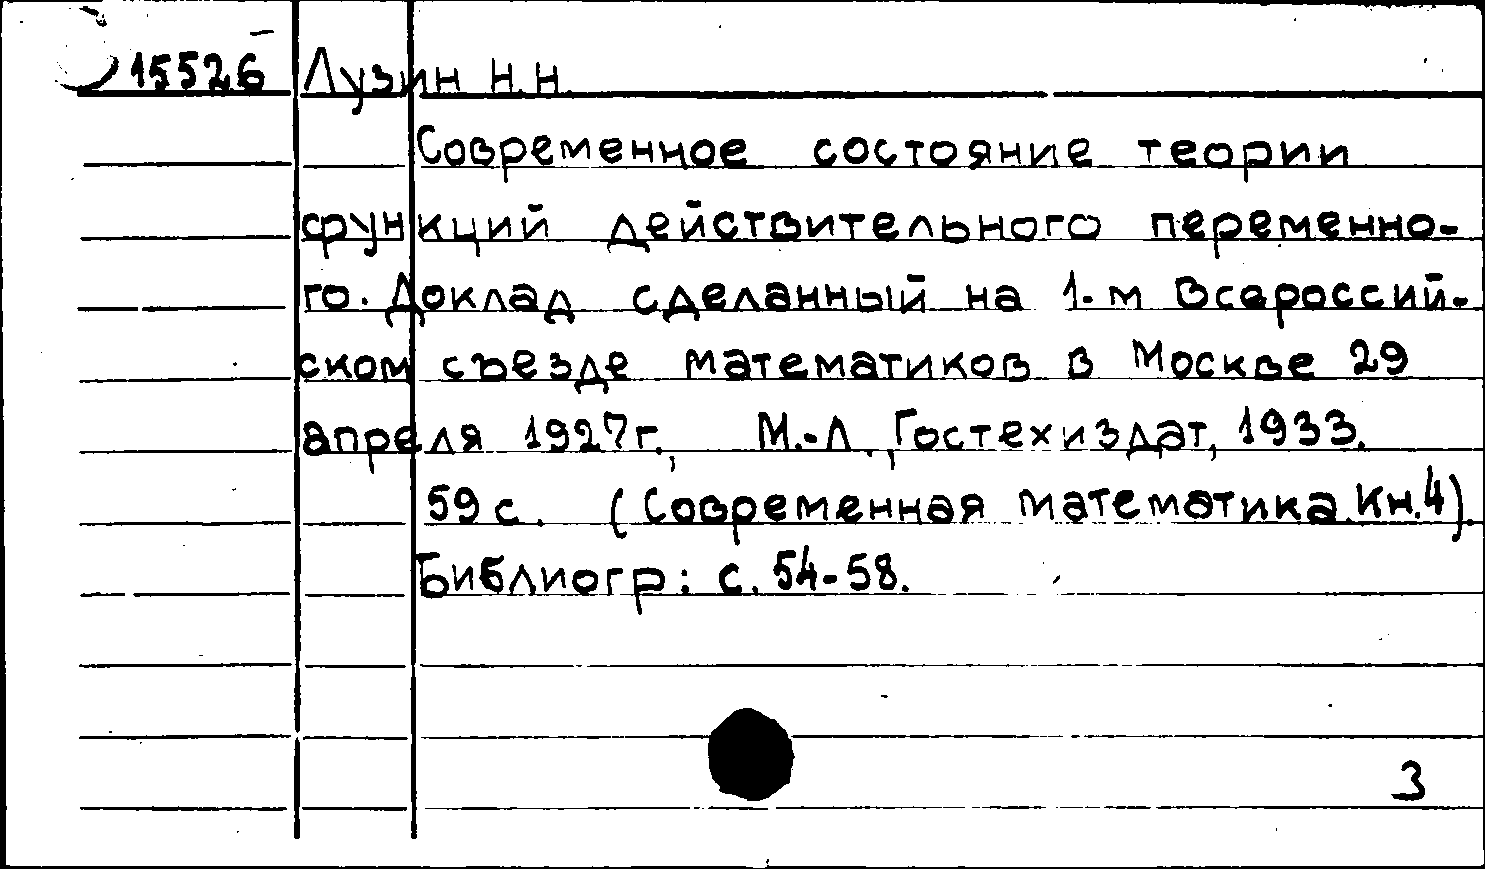 15526 Лузин Н.Н.
Современное состояние теории
функций действительного переменно-
го. Доклад сделанный на 1-м Всероссий-
ском съезде математиков в Москве 29
апреля 1927г., М.-Л., Гостехиздат, 1933.
59 с. (Современная математика. Кн.4).
Библиогр: с. 54-58.
3